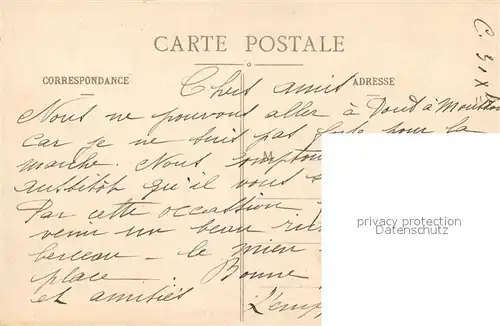 CARTE POSTALE
CORRESPONDANCE
ADRESSE
Chers amis
Nous ne pouvons aller à Pont à Mousson
car je ne suis pas forte pour la
marche. Nous
aussitôt qu'il vous
Par cette occassion
venir un beau
berceau - le mien
place. Bonne
et amitiés
privacy protection
Datenschutz